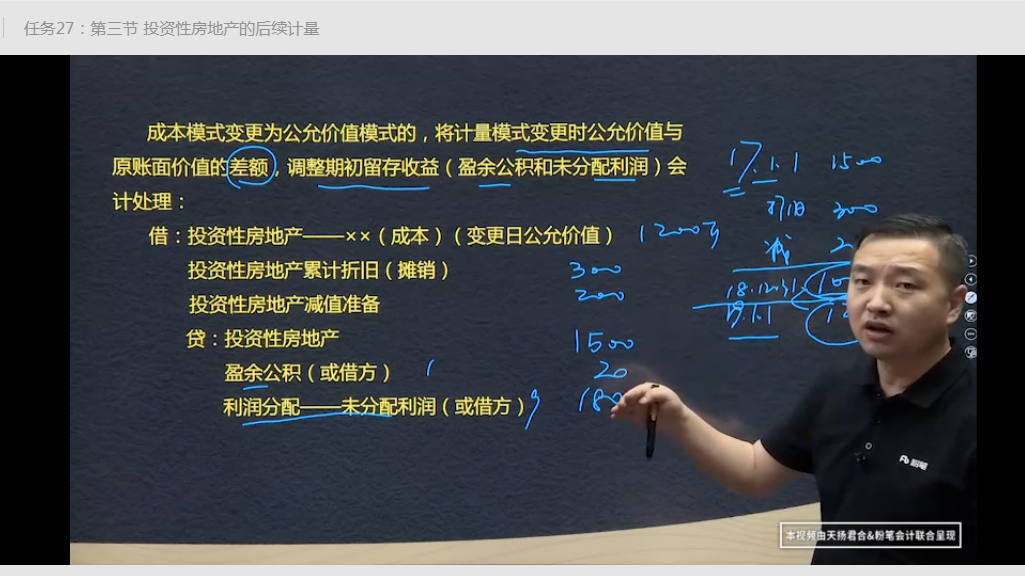 任务27：第三节 投资性房地产的后续计量
成本模式变更为公允价值模式的，将计量模式变更时公允价值与
原账面价值的差额，调整期初留存收益（盈余公积和未分配利润）会
计处理：
借：投资性房地产——××（成本）（变更日公允价值）
1200万
投资性房地产累计折旧（摊销）
300
投资性房地产减值准备
200
贷：投资性房地产
1500
盈余公积（或借方）
1
20
利润分配——未分配利润（或借方）
9
180
17.1.1 1500
折旧 300
减
18.12.31
19.1.1
粉笔
本视频由天扬君合&粉笔会计联合呈现